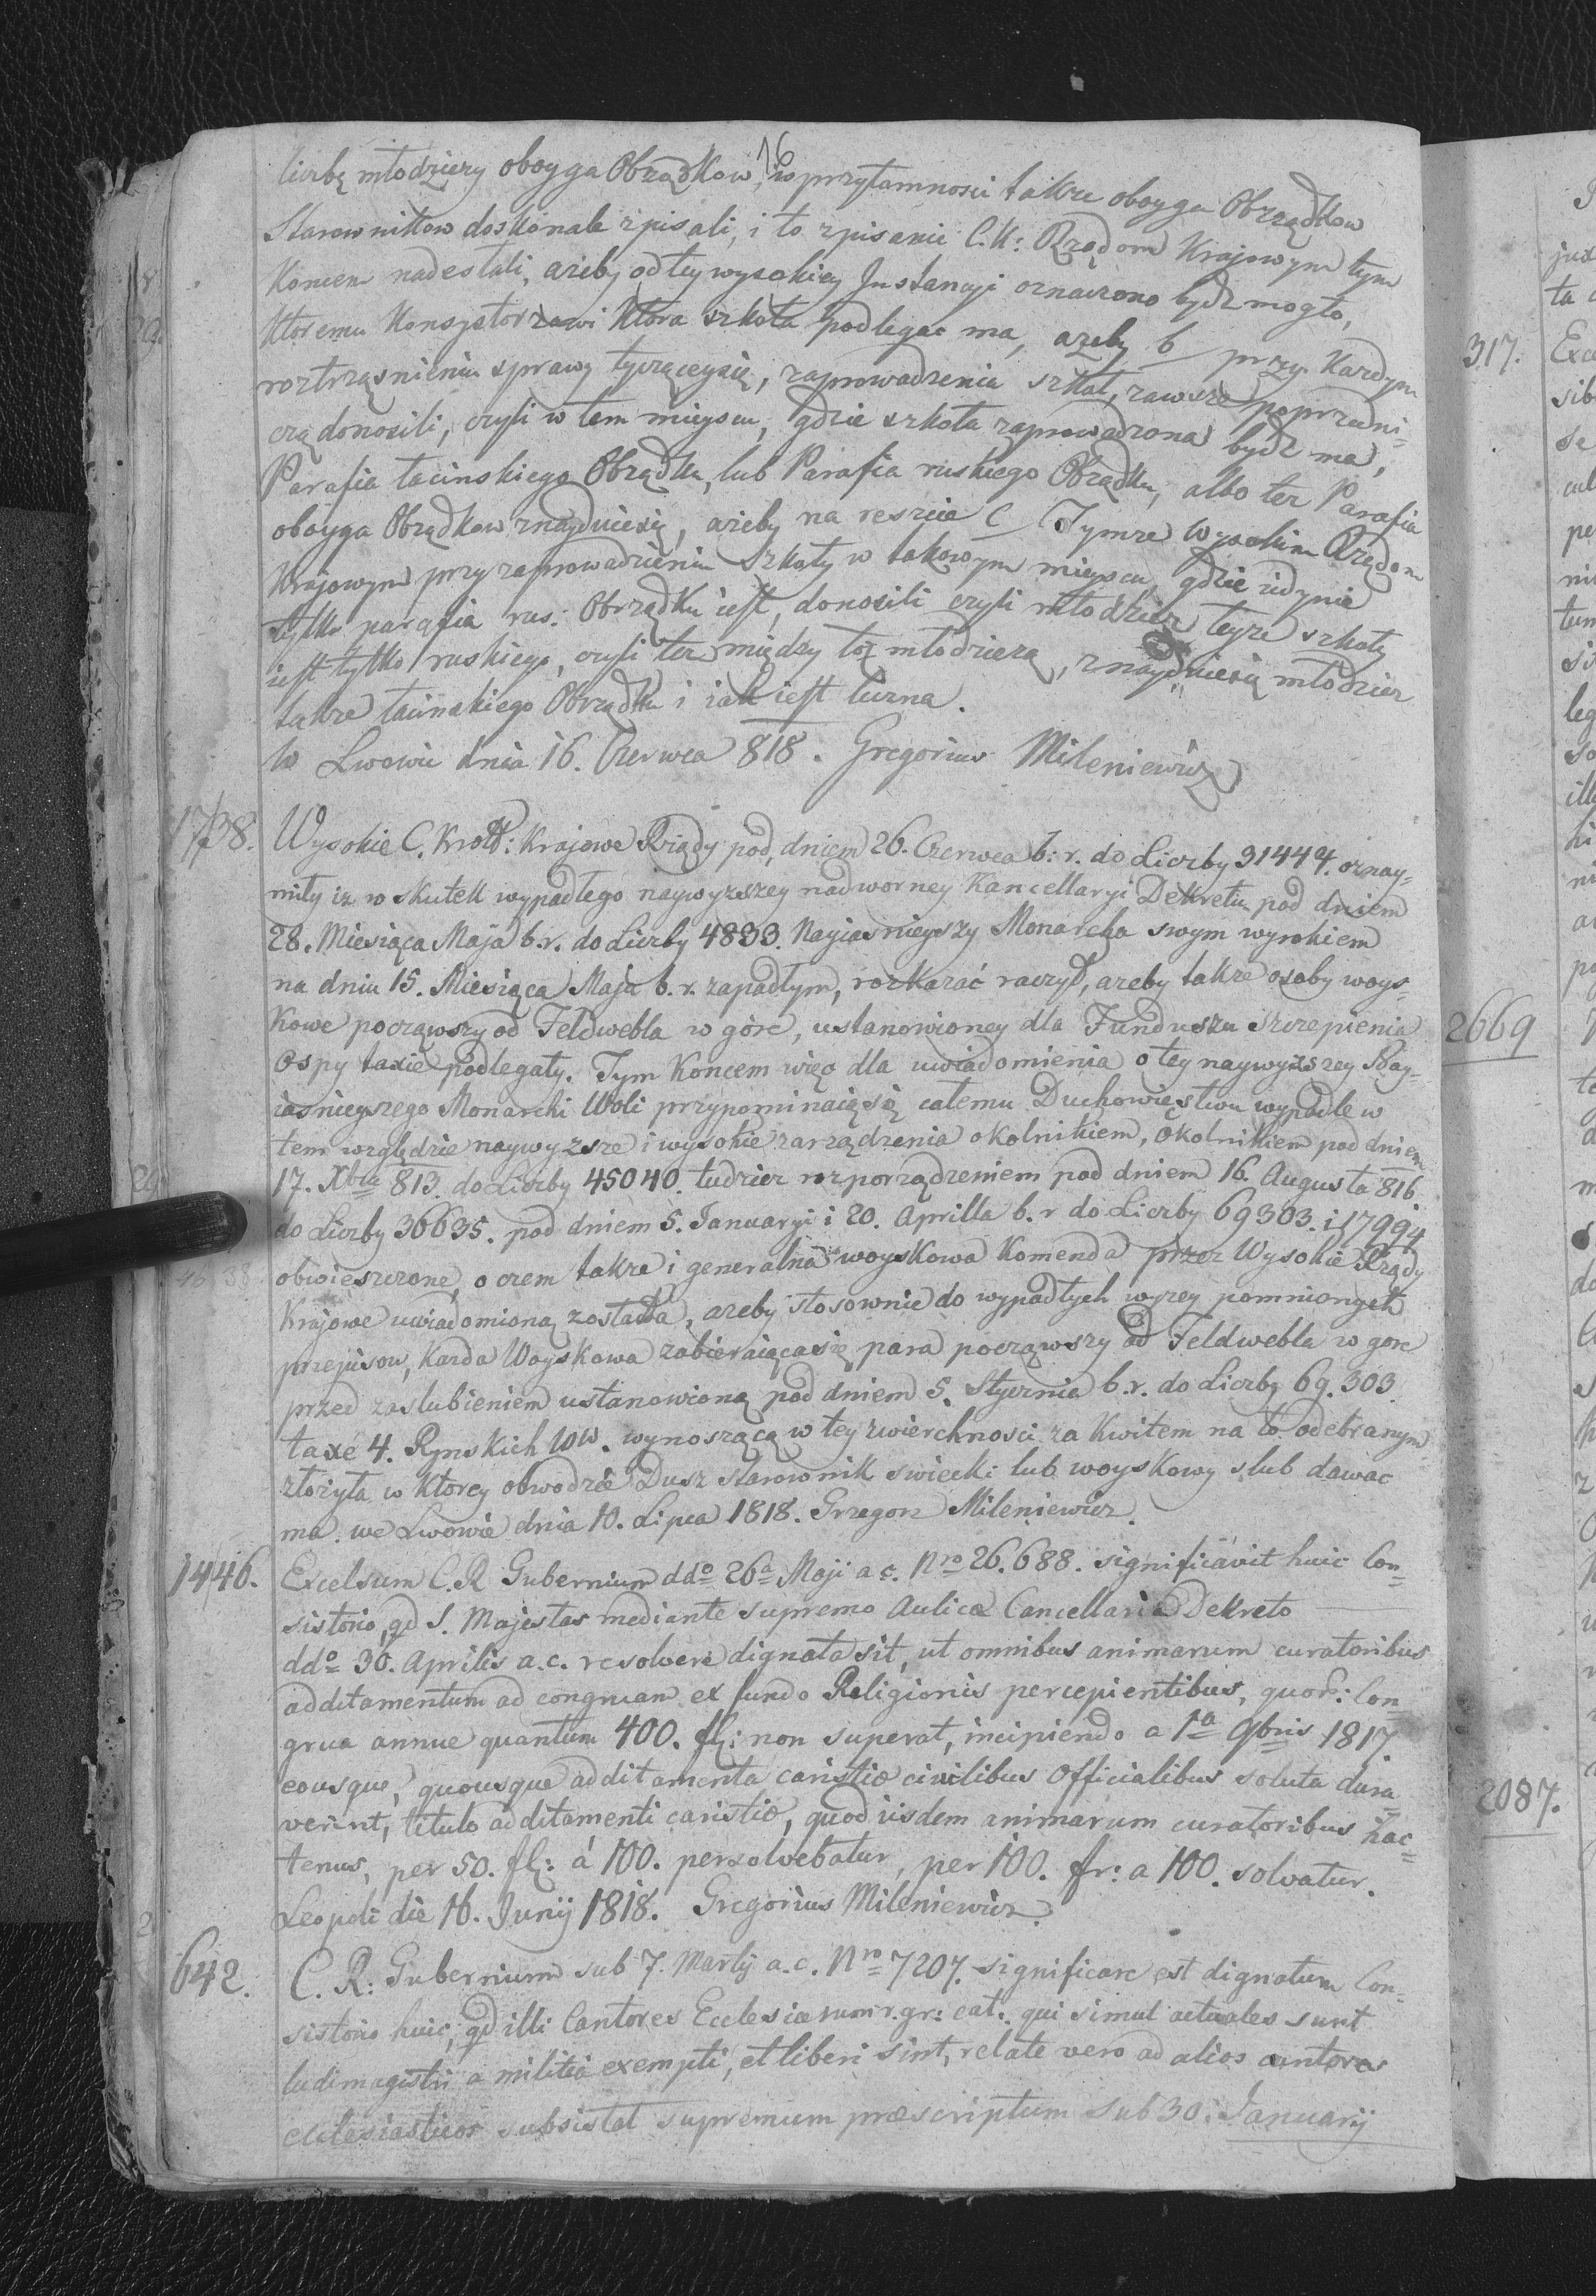 16
liczbę młodzieży oboyga Obrządkow, w przytomnosci takze oboyga Obrządkow
Starownikow doskonale spisali, i to spisanie C. K: Rządom Krajowym tym
Koncem nadesłali, azeby od tey wysokiey Instancyi oznaczono bydz mogło,
Ktoremu Konsystorzowi Ktora szkoła podlegac ma, azeby b przy Kazdym
roztrząsnieniu sprawy tyczącey się, zaprowadzenia szkoł, zawsze poprzedni=
czą donosili, czyli w tem mieyscu, gdzie szkoła zaprowadzona bydz ma,
Parafia łacinskiego Obrządku, lub Parafia ruskiego Obrządku, albo tez Parafia
oboyga Obrządkow znayduiesię, azeby na reszcie C Tymze Wysokim Rządom
Krajowym przy zaprowadzeniu Szkoły w takowym mieyscu, gdzie iedynie
tylko parafia rus: Obrządku iest, donosili czyli młodziez teyze szkoły
iest tylko ruskiego, czyli tez między tąz młodziezą, znayduiesię młodziez
takze łacinskiego Obrządku i iak iest liczna.
W Lwowie dnia 16. Czerwca 818. Gregorius Mileniewicz
1738. Wysokie C. Kroll: Krajowe Rządy pod dniem 26. Czerwca b: r. do Liczby 31444. oznay=
miły iz w skutek wypadłego naywyzszey nadworney Kancellaryi Dekretu pod dniem
28. Miesiąca Maja b. r. do Liczby 4833. Nayiasnieyszy Monarcha swym wyrokiem
na dniu 15. Miesiąca Maja b. r. zapadłym, rozkazać raczył, azeby takze osoby woys=
Kowe począwszy od Feldwebla w górę, ustanowioney dla Funduszu szczepienia
Ospy taxie podlegały. Tym Koncem więc dla uwiadomienia o tey naywyzszey Nay=
iasnieyszego Monarchi Woli przypominaią się całemu Duchowienstwu wypadłe w
tem względzie naywyzsze i wysokie zarządzenia okolnikiem, okolnikiem pod dniem
17. Xbra 813. do Liczby 45040. tudziez rozporządzeniem pod dniem 16. Augusta 816
do Liczby 36635. pod dniem 5. Januaryi i 20. Aprilla b. r do Liczby 69303. i 17994
obwieszczone, o czem takze i generalna woyskowa Komenda przez Wysokie Rządy
Krajowe uwiadomioną została, azeby stosownie do wypadłych wyzey pomnionych
przepisow, Kazda Woyskowa zabieraiącasię para począwszy od Feldwebla w gorę
przed zaslubieniem ustanowioną pod dniem 5. Stycznia b. r. do Liczby 69.303
taxé 4. Rynskich WW. wynoszącą w tey zwierchnosci za Kwitem na to odebranym
złożyła w Ktorey obwodzie Dusz starownik swiecki lub woyskowy slub dawac
ma. we Lwowie dnia 10. Lipca 1818. Grzegorz Mileniewicz.
1446. Excelsum C. R Gubernium ddo 26a Maji a c. Nro 26.688. significavit huic Con=
sistorio, qd S. Majestas mediante supremo Aulicæ Cancellariæ Dekreto
ddo 30. Aprilis a. c. resolvere dignata sit, ut omnibus animarum curatoribus
additamentum ad congruam ex fundo Religionis percipientibus, quor: Con=
grua annue quantum 400. fl: non superat, incipiendo a 1a 9bris 1817
eousque, quousque additamenta caristiæ civilibus Officialibus soluta dura=
verint, titulo additamenti caristiæ, quod iisdem animarum curatoribus hac=
tenus, per 50. fl: á 100. persolvebatur, per 100. fr: a 100. solvatur.
Leopoli die 16. Junij 1818. Gregorius Mileniewicz.
642. C. R: Gubernium sub 7. Martij a. c. Nro 7207. significare est dignatum Con=
sistorio huic, qd illi Cantores Ecclesiarum r. gr: cat: qui simul actuales sunt
ludimagistri a militia exempti, et liberi sint, relate vero ad alios cantores
ecclesiasticos subsistat supremum præscriptum sub 30. Januarij
317.
2669
2087.